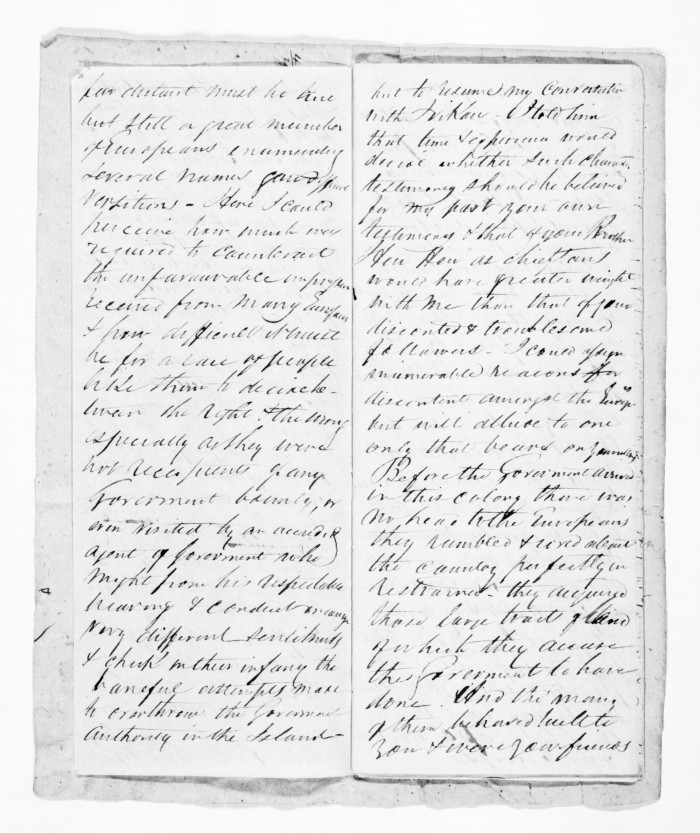 far distant must be true
but still a great number
of Europeans enumerating
several names
versitions - Here I could
perceive how much was
required to counteract
the unfavourable impression
received from many Europeans
& how difficult it must
be for a race of people
like them to decide be-
tween the right & the wrong
especially as they were
not recipients of any
Goverment bounty, or
even visited by an accredited
agent of Goverment who
might from his respectable
bearing & conduct
very different sentiments
& check in their infancy the
baneful attempts made
to overthrow the Goverment
Authority in the Island -
but to resume my conversation
with - I told him
that time & experience would
decide whether such
testimony should be believed
for my part your own
testimony & that of your Brother
Heu Heu as chieftans
would have greater weight
with me than that of your
discontented & troublesome
followers - I could assign
inumerable reasons for
discontent amongst the
but will allude to one
only that bears on yourself
Before the Goverment arrived
in this colony there was
no head to the Europeans
they rambled & roved about
the country perfectly un
restrained they acquired
those large tracts of land
of which they accuse
the Goverment to have
done. And tho' many
of them behaved well to
you & were your friends